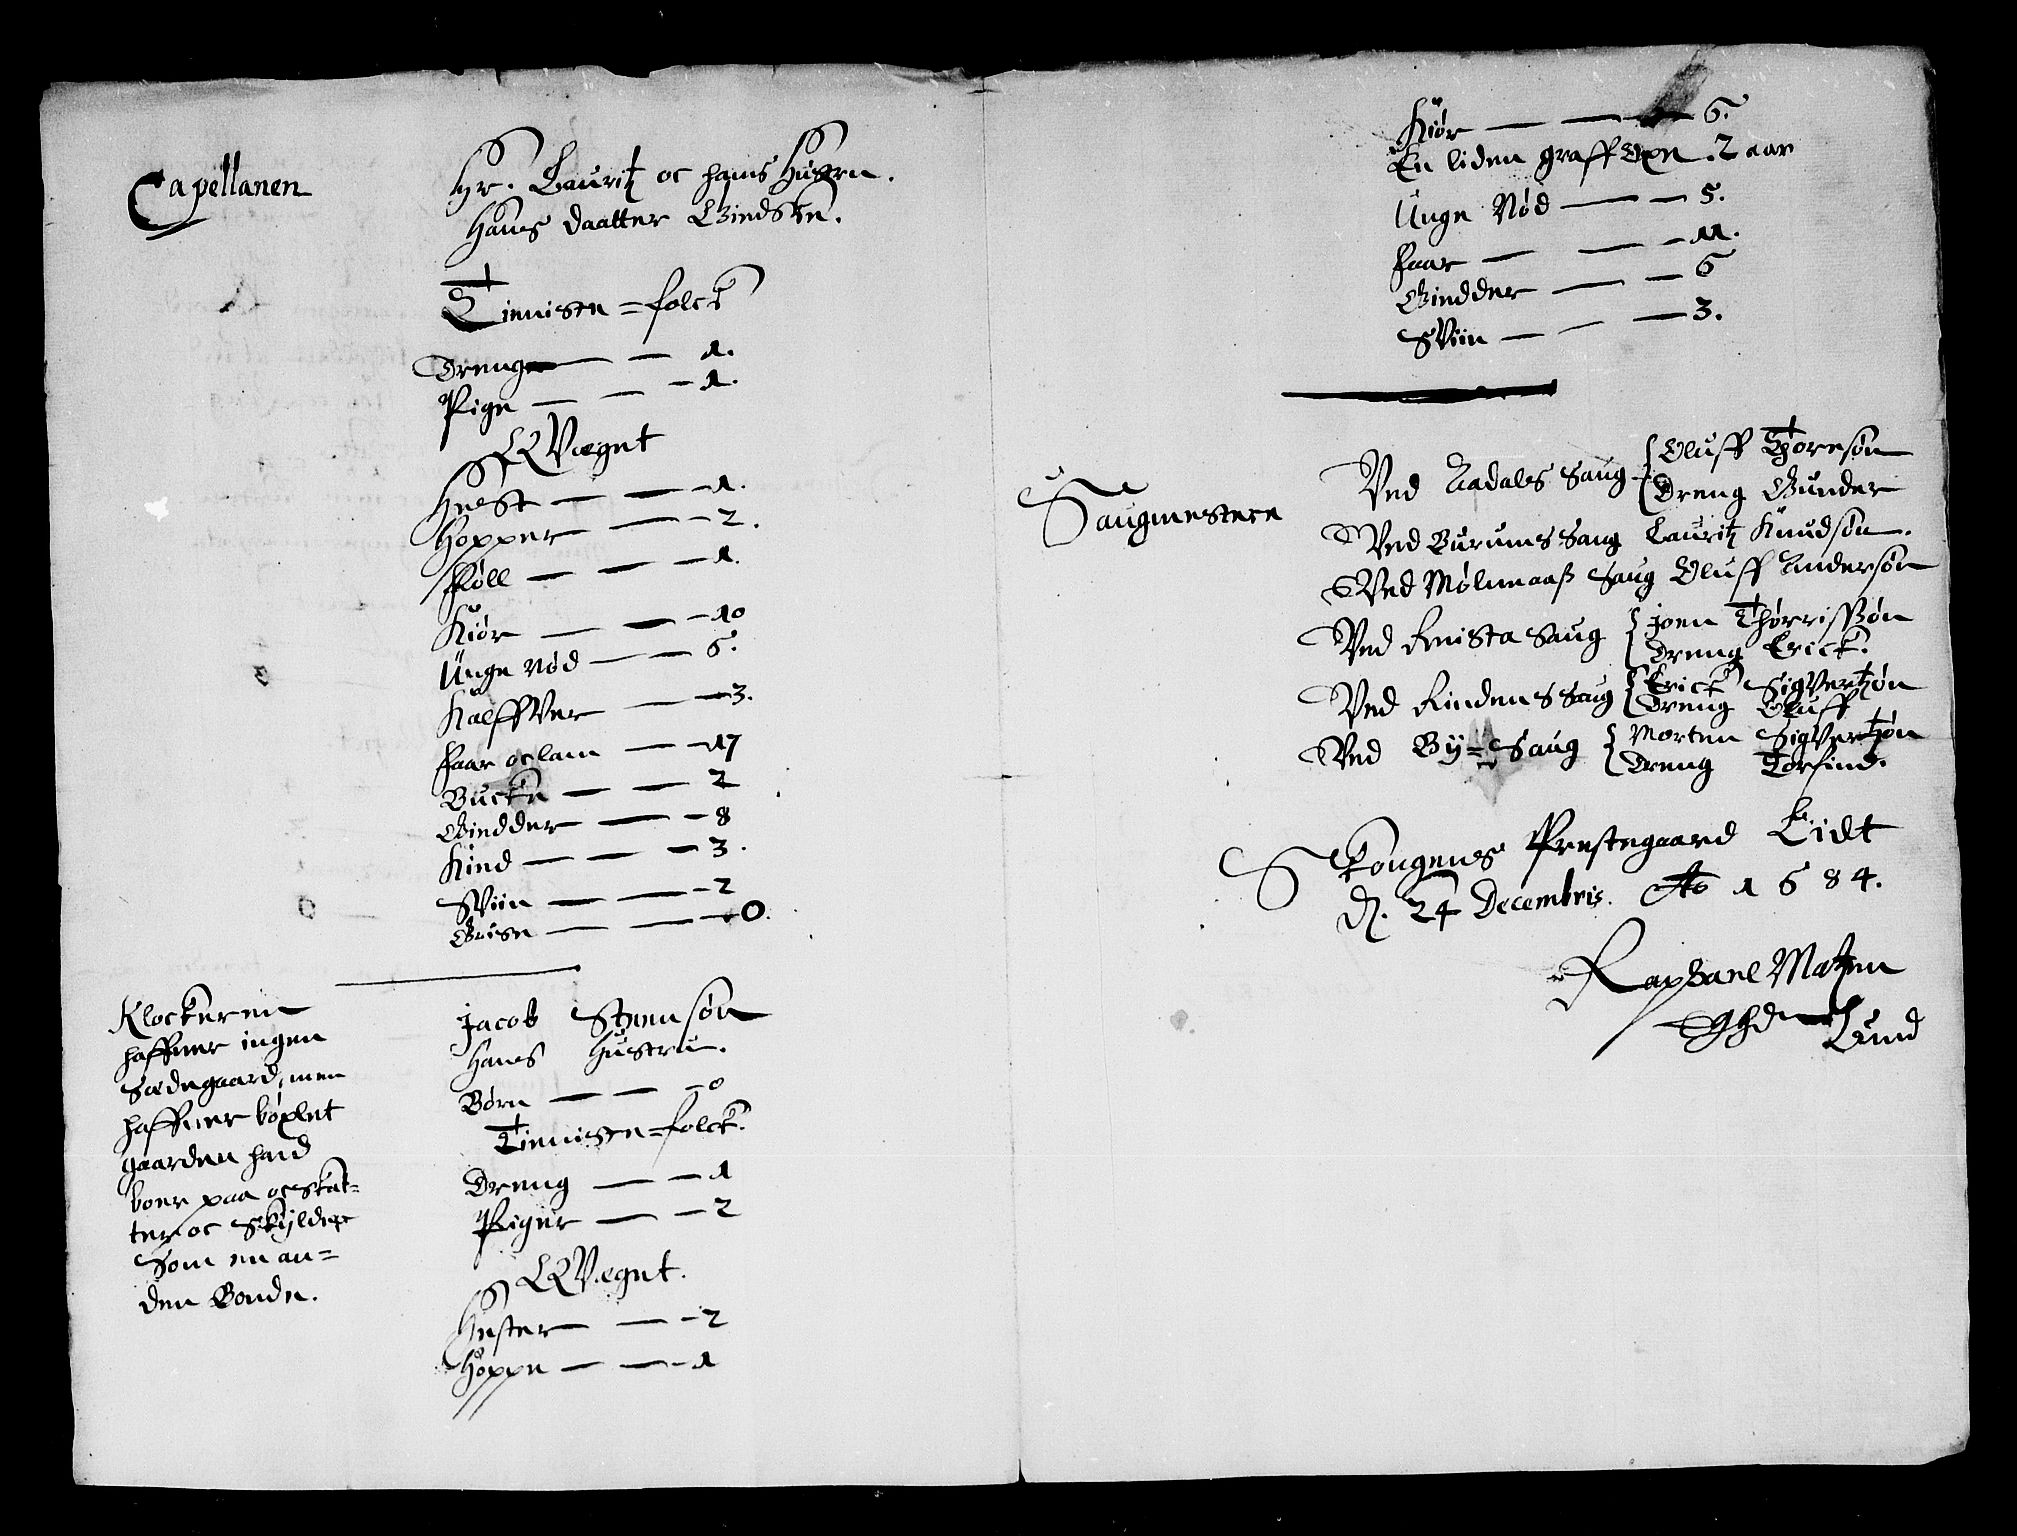 Capellanen
Hr. Lauritz oc hans Husfru.
Hans daatter Birdsten.
Tienniste=folck
Drenge — — 1.
Pige — — 1.
QVægnt
Hest — — 1.
Hopper — 2.
Føll — — 1.
Kiør — — 10
Unge Nød — — 6.
KalffVer — — 3.
Faar oc lam — — 17
Bucke — — 2
Giedder — — 8
Kind — — 3.
SViin — — 2
Grise — — 0.
Klockeren
haffuer ingen
Sædegaard, men
haffuer böxlet
gaarden hand
boer paa oc skat=
ter oc Skylder
Som en an=
den Bonde.
Jacob Steensøn
Hans Hustru.
Børn — — 0
Tienniste=folck.
Dreng — — 1
Piger — — 2
QVægnt.
Hester — — 2
Hoppe — — 1
Kiør — — 6.
En liden graff Oxe. 2 aar
Unge Nød — — 5.
Faar — — 11.
Giedder — — 6
SViin — — 3.
Saugmestere
Ved Aadals Saug Oluff Thoresøn
Dreng Gunder
Ved Burums Saug Lauritz Knudsøn.
Ved Mølnaaß Saug Oluff Andersøn
Ved Knista Saug Joen Thørrissøn
Dreng Erick.
Ved Rindens Saug Erick SigVertzøn
Dreng Oluff
Ved By=Saug Morten SigVertzøn
Dreng Torfind.
Skougens Prestegaard Eidt
d. 24 Decembris. Ao 1684.
Raphael Matzen
Lund